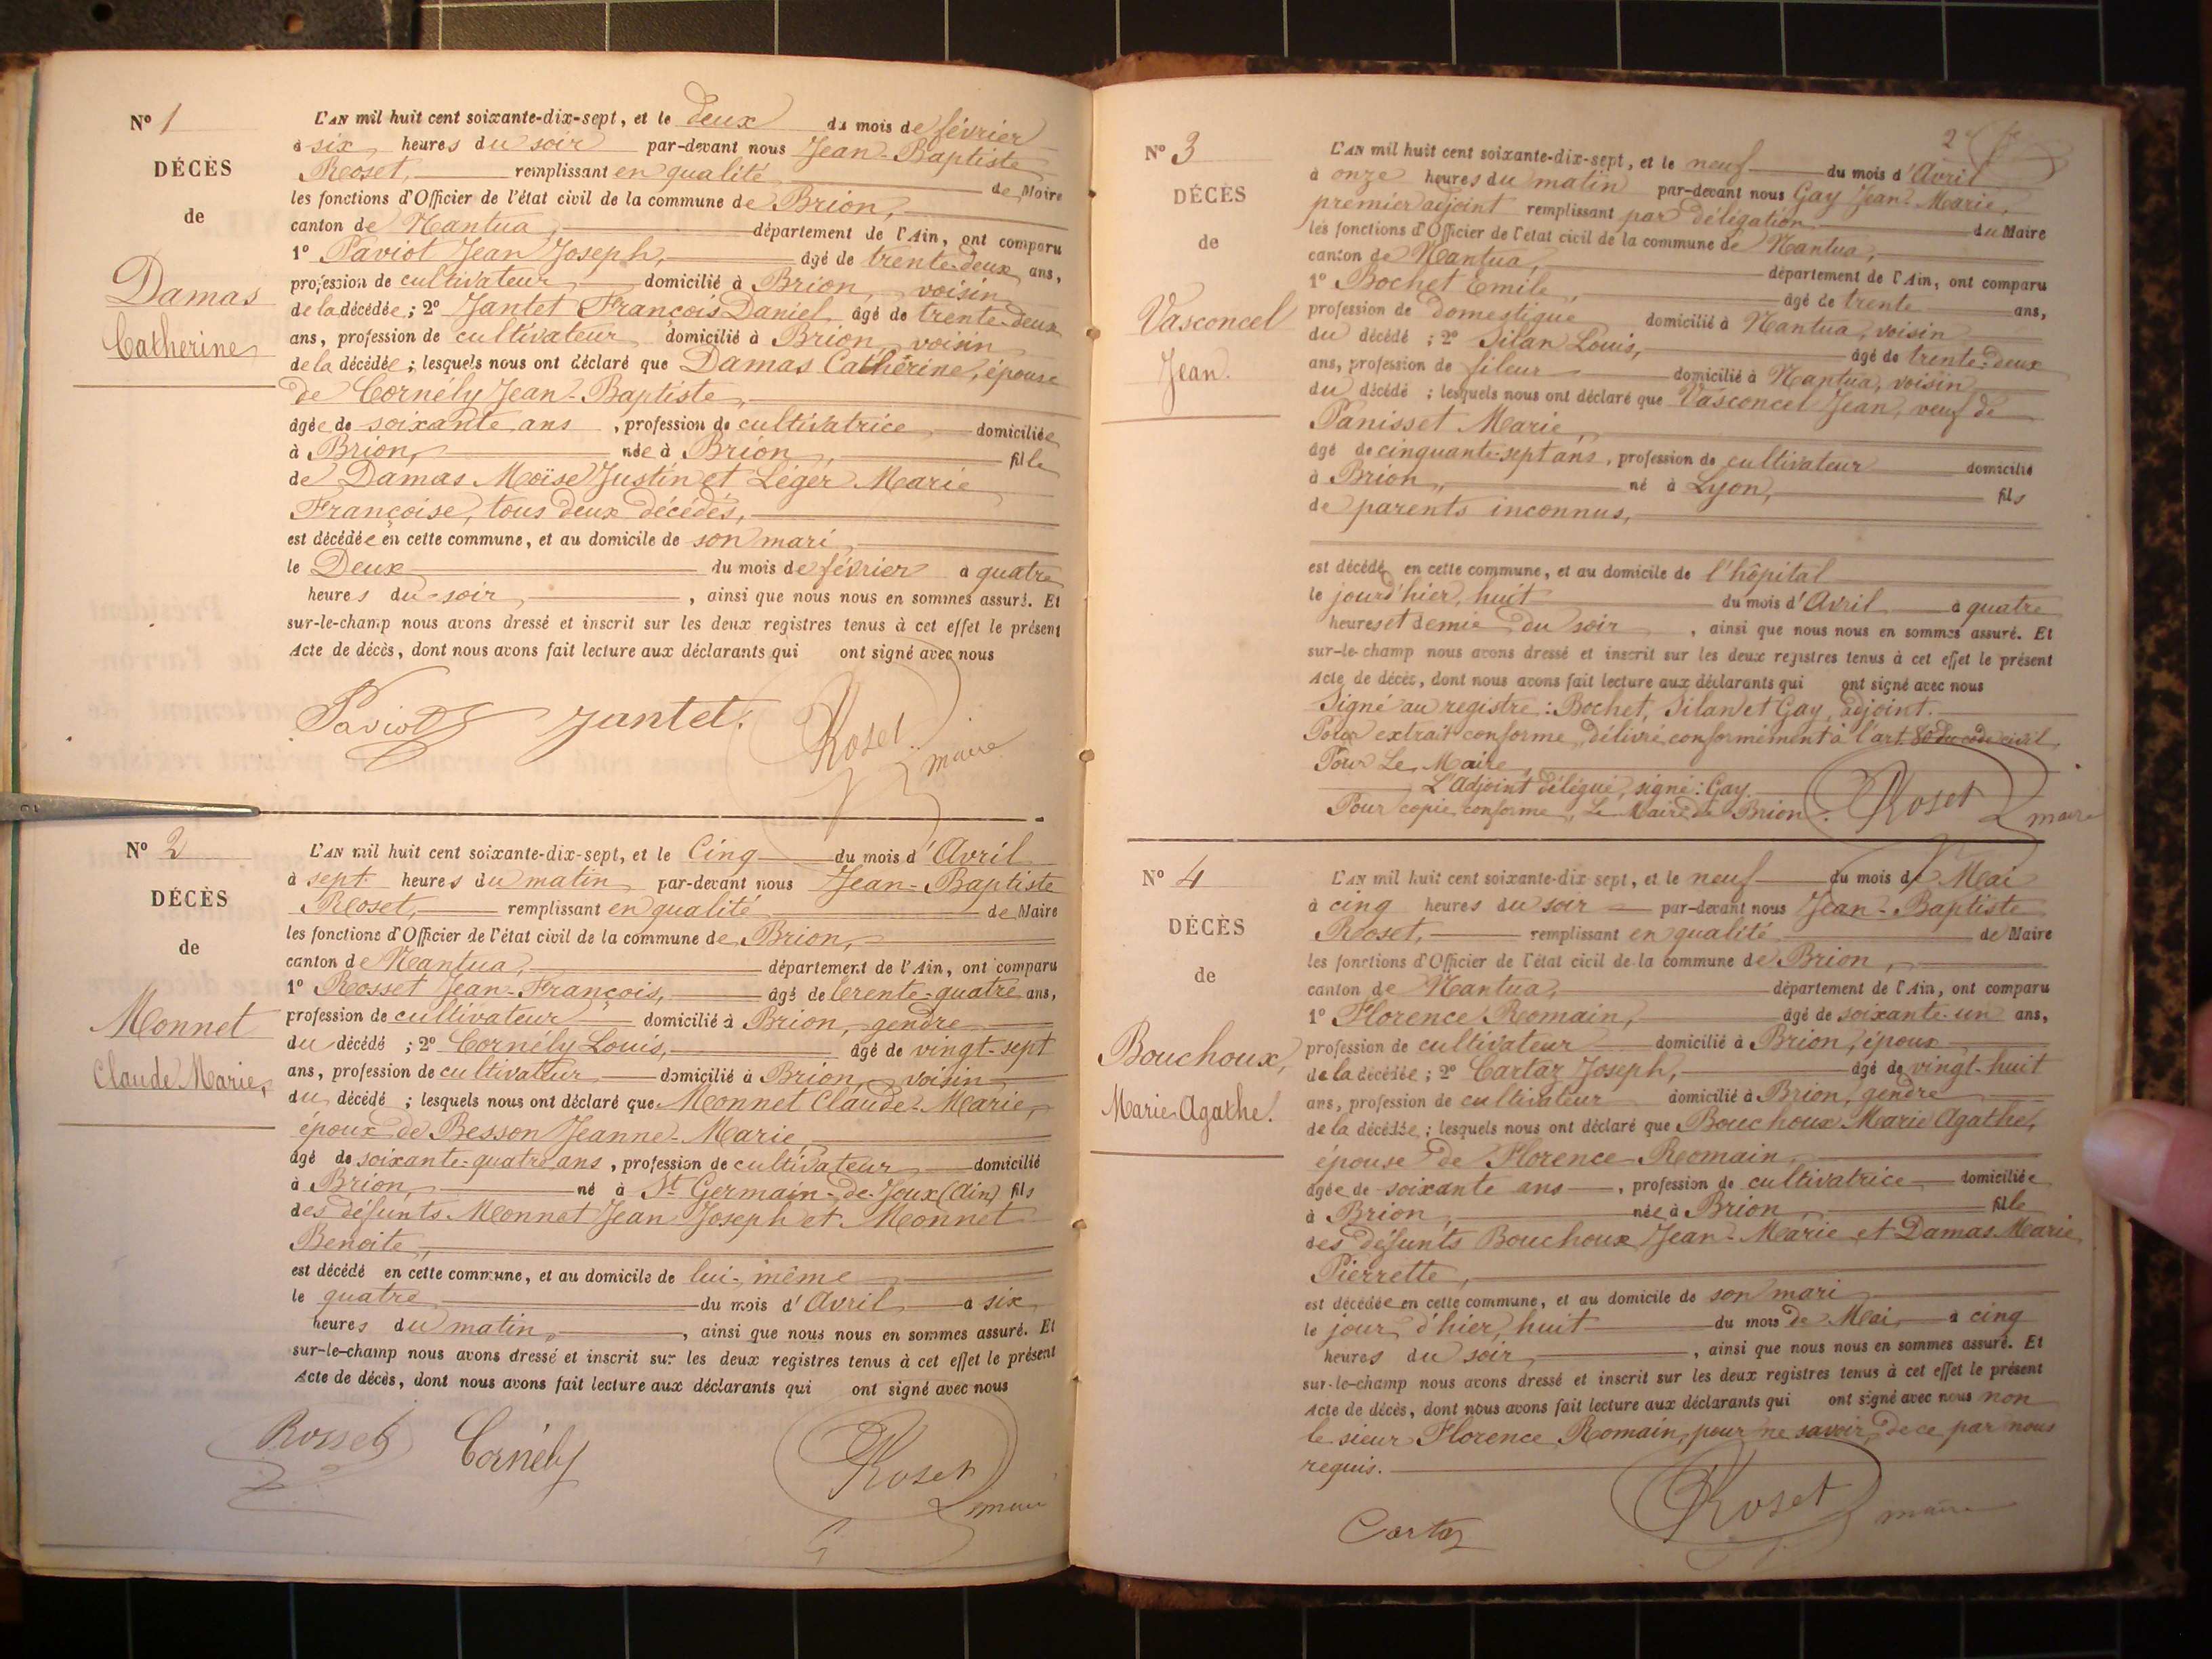 Nº 1
DÉCÈS
de
Damas
Catherine
L'AN mil huit cent soixante-dix-sept, et le deux du mois de février
à six heures du soir par-devant nous Jean-Baptiste
Roset, remplissant en qualité de Maire
les fonctions d'Officier de l'état civil de la commune de Brion,
canton de Nantua, département de l'Ain, ont comparu
1º Paviot Jean Joseph, âgé de trente-deux ans,
profession de cultivateur domicilié à Brion, voisin
de la décédée ; 2º Jantet François Daniel âgé de trente-deux
ans, profession de cultivateur domicilié à Brion, voisin
de la décédée ; lesquels nous ont déclaré que Damas Cathérine, épouse
de Cornély Jean-Baptiste,
âgée de soixante ans , profession de cultivatrice domiciliée
à Brion, née à Brion, fille
de Damas Moïse Justin et Léger Marie
Françoise, tous deux décédés,
est décédée en cette commune, et au domicile de son mari
le Deux du mois de février à quatre
heures du soir, , ainsi que nous nous en sommes assuré. Et
sur-le-champ nous avons dressé et inscrit sur les deux registres tenus à cet effet le présent
Acte de décès, dont nous avons fait lecture aux déclarants qui ont signé avec nous
Paviot Jantet. Roset maire
Nº 2
DÉCÈS
de
Monnet
Claude Marie,
L'AN mil huit cent soixante-dix-sept, et le Cinq du mois d'Avril
à sept heures du matin par-devant nous Jean-Baptiste
Roset, remplissant en qualité de Maire
les fonctions d'Officier de l'état civil de la commune de Brion,
canton de Nantua, département de l'Ain, ont comparu
1º Rosset Jean-François, âgé de trente-quatre ans,
profession de cultivateur domicilié à Brion, gendre
du décédé ; 2º Cornély Louis, âgé de vingt-sept
ans, profession de cultivateur domicilié à Brion, voisin
du décédé ; lesquels nous ont déclaré que Monnet Claude-Marie,
époux de Besson Jeanne-Marie,
âgé de soixante-quatre ans , profession de cultivateur domicilié
à Brion, né à St Germain-de-Joux (Ain) fils
des défunts Monnet Jean Joseph et Monnet
Benoite,
est décédé en cette commune, et au domicile de lui-même
le quatre du mois d'Avril à six
heures du matin, , ainsi que nous nous en sommes assuré. Et
sur-le-champ nous avons dressé et inscrit sur les deux registres tenus à cet effet le présent
Acte de décès, dont nous avons fait lecture aux déclarants qui ont signé avec nous
Rosset Cornély Roset maire
2
Nº 3
DÉCÈS
de
Vasconcel
Jean.
L'AN mil huit cent soixante-dix-sept, et le neuf du mois d'Avril
à onze heures du matin par-devant nous Gay Jean-Marie,
premier adjoint remplissant par délégation du Maire
les fonctions d'Officier de l'état civil de la commune de Nantua,
canton de Nantua, département de l'Ain, ont comparu
1º Bochet Emile, âgé de trente ans,
profession de domestique domicilié à Nantua, voisin
du décédé ; 2º Silan Louis, âgé de trente-deux
ans, profession de fileur domicilié à Nantua, voisin
du décédé ; lesquels nous ont déclaré que Vasconcel Jean, veuf de
Panisset Marie,
âgé de cinquante-sept ans, profession de cultivateur domicilié
à Brion, né à Lyon, fils
de parents inconnus,
est décédé en cette commune, et au domicile de l'hôpital
le jour d'hier, huit du mois d'Avril à quatre
heures et demie du soir , ainsi que nous nous en sommes assuré. Et
sur-le-champ nous avons dressé et inscrit sur les deux registres tenus à cet effet le présent
Acte de décès, dont nous avons fait lecture aux déclarants qui ont signé avec nous
Signé au registre : Bochet, Silan et Gay, adjoint.
Pour extrait conforme, délivré conformément à l'art. 80 du code civil,
Pour Le Maire,
L'Adjoint délégué, signé : Gay.
Pour copie conforme, Le Maire de Brion. Roset maire
Nº 4
DÉCÈS
de
Bouchoux,
Marie Agathe.
L'AN mil huit cent soixante-dix-sept, et le neuf du mois de Mai
à cinq heures du soir par-devant nous Jean-Baptiste
Roset, remplissant en qualité de Maire
les fonctions d'Officier de l'état civil de la commune de Brion,
canton de Nantua, département de l'Ain, ont comparu
1º Florence Romain, âgé de soixante-un ans,
profession de cultivateur domicilié à Brion, époux
de la décédée ; 2º Cartaz Joseph, âgé de vingt-huit
ans, profession de cultivateur domicilié à Brion, gendre
de la décédée ; lesquels nous ont déclaré que Bouchoux Marie Agathe,
épouse de Florence Romain,
âgée de soixante ans , profession de cultivatrice domiciliée
à Brion, née à Brion, fille
des défunts Bouchoux Jean-Marie et Damas Marie
Pierrette,
est décédée en cette commune, et au domicile de son mari
le jour d'hier, huit du mois de Mai à cinq
heures du soir, , ainsi que nous nous en sommes assuré. Et
sur-le-champ nous avons dressé et inscrit sur les deux registres tenus à cet effet le présent
Acte de décès, dont nous avons fait lecture aux déclarants qui ont signé avec nous non
le sieur Florence Romain, pour ne savoir, de ce par nous
requis.
Cartaz Roset maire